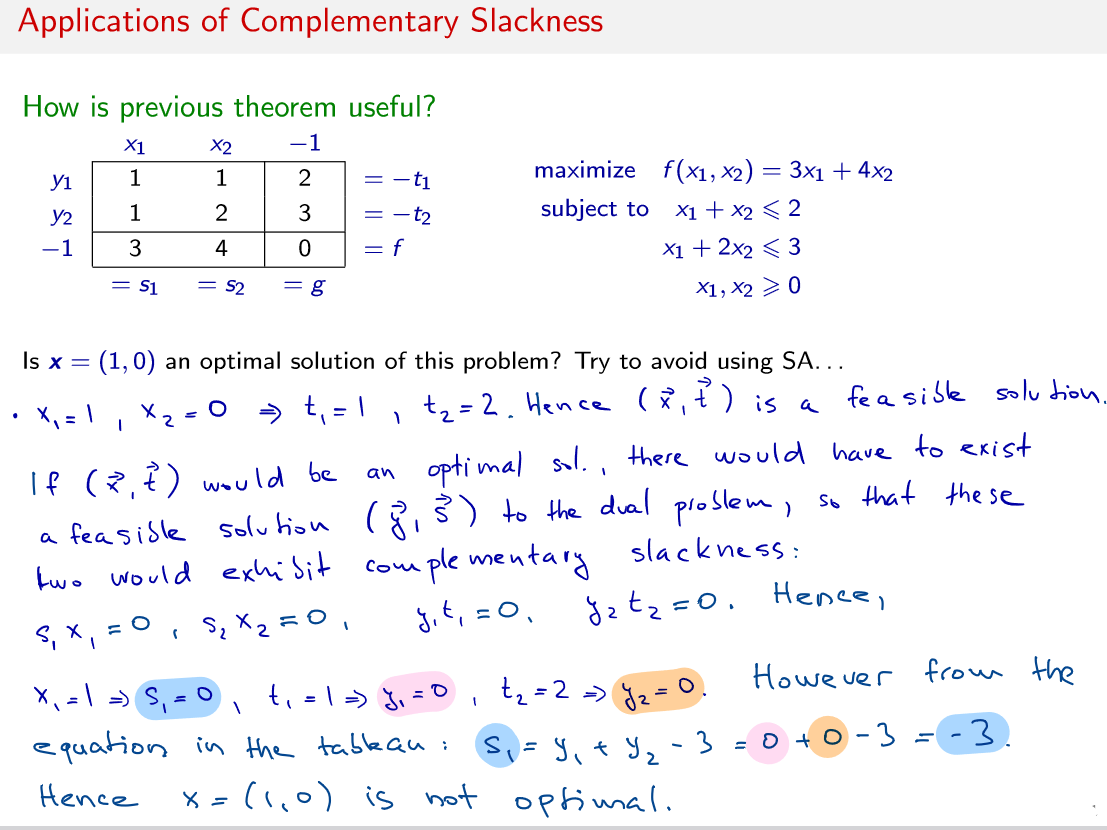 Applications of Complementary Slackness
How is previous theorem useful?
x₁ x₂ −1
y₁ 1 1 2 = −t₁
y₂ 1 2 3 = −t₂
−1 3 4 0 = f
= s₁ = s₂ = g
maximize f(x₁, x₂) = 3x₁ + 4x₂
subject to x₁ + x₂ ⩽ 2
x₁ + 2x₂ ⩽ 3
x₁, x₂ ⩾ 0
Is x = (1, 0) an optimal solution of this problem? Try to avoid using SA...
• x₁=1, x₂=0 ⇒ t₁=1, t₂=2. Hence (x⃗, t⃗) is a feasible solution.
If (x⃗, t⃗) would be an optimal sol., there would have to exist
a feasible solution (y⃗, s⃗) to the dual problem, so that these
two would exhibit complementary slackness:
s₁x₁=0, s₂x₂=0, y₁t₁=0, y₂t₂=0. Hence,
x₁=1 ⇒ s₁=0, t₁=1 ⇒ y₁=0, t₂=2 ⇒ y₂=0. However from the
equation in the tableau: s₁= y₁ + y₂ - 3 = 0 + 0 - 3 = -3.
Hence x = (1,0) is not optimal.